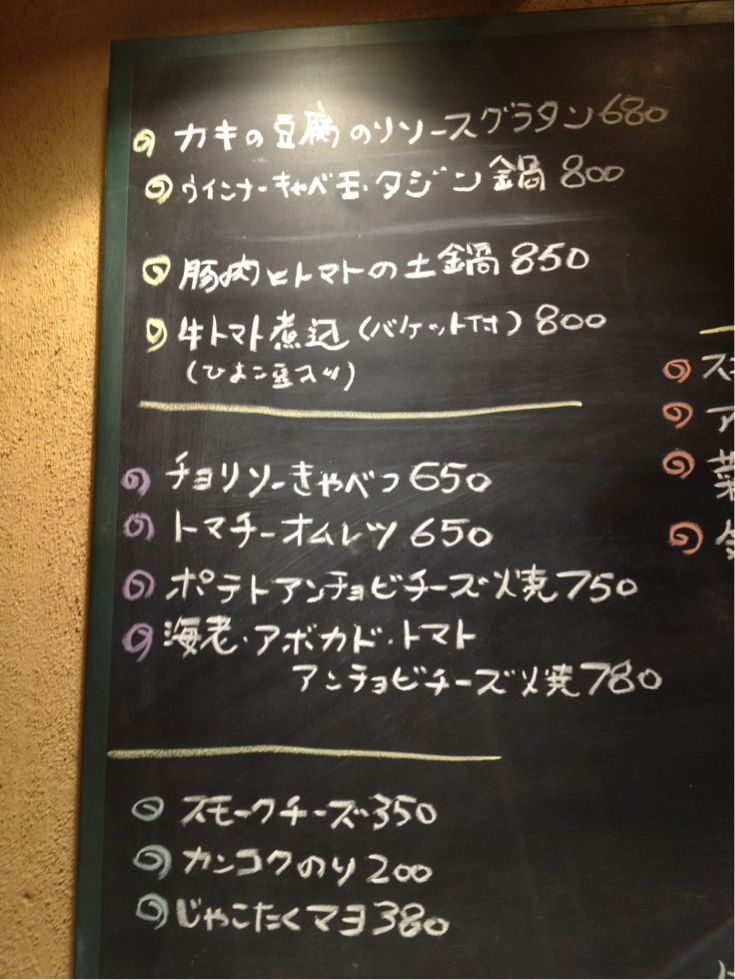 カキの豆腐のリソースグラタン680
ウインナーキャベ玉・タジン鍋800
豚肉とトマトの土鍋850
牛トマト煮込(バケット付)800
(ひよこ豆入リ)
チョリソーきゃべつ650
トマチーオムレツ650
ポテトアンチョビチーズ焼750
海老・アボカド・トマト
アンチョビチーズ焼780
スモークチーズ350
カンコクのり200
じゃこたくマヨ380
ス
ア
菜